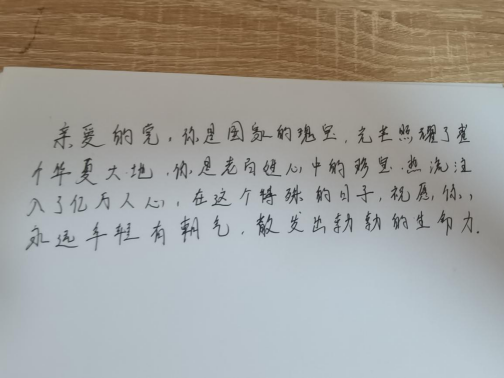 亲爱的党,你是国家的瑰宝,光芒照耀了整
个华夏大地,你是老百姓心中的珍宝,热流注
入了亿万人心,在这个特殊的日子,祝愿你,
永远年轻有朝气,散发出勃勃的生命力.